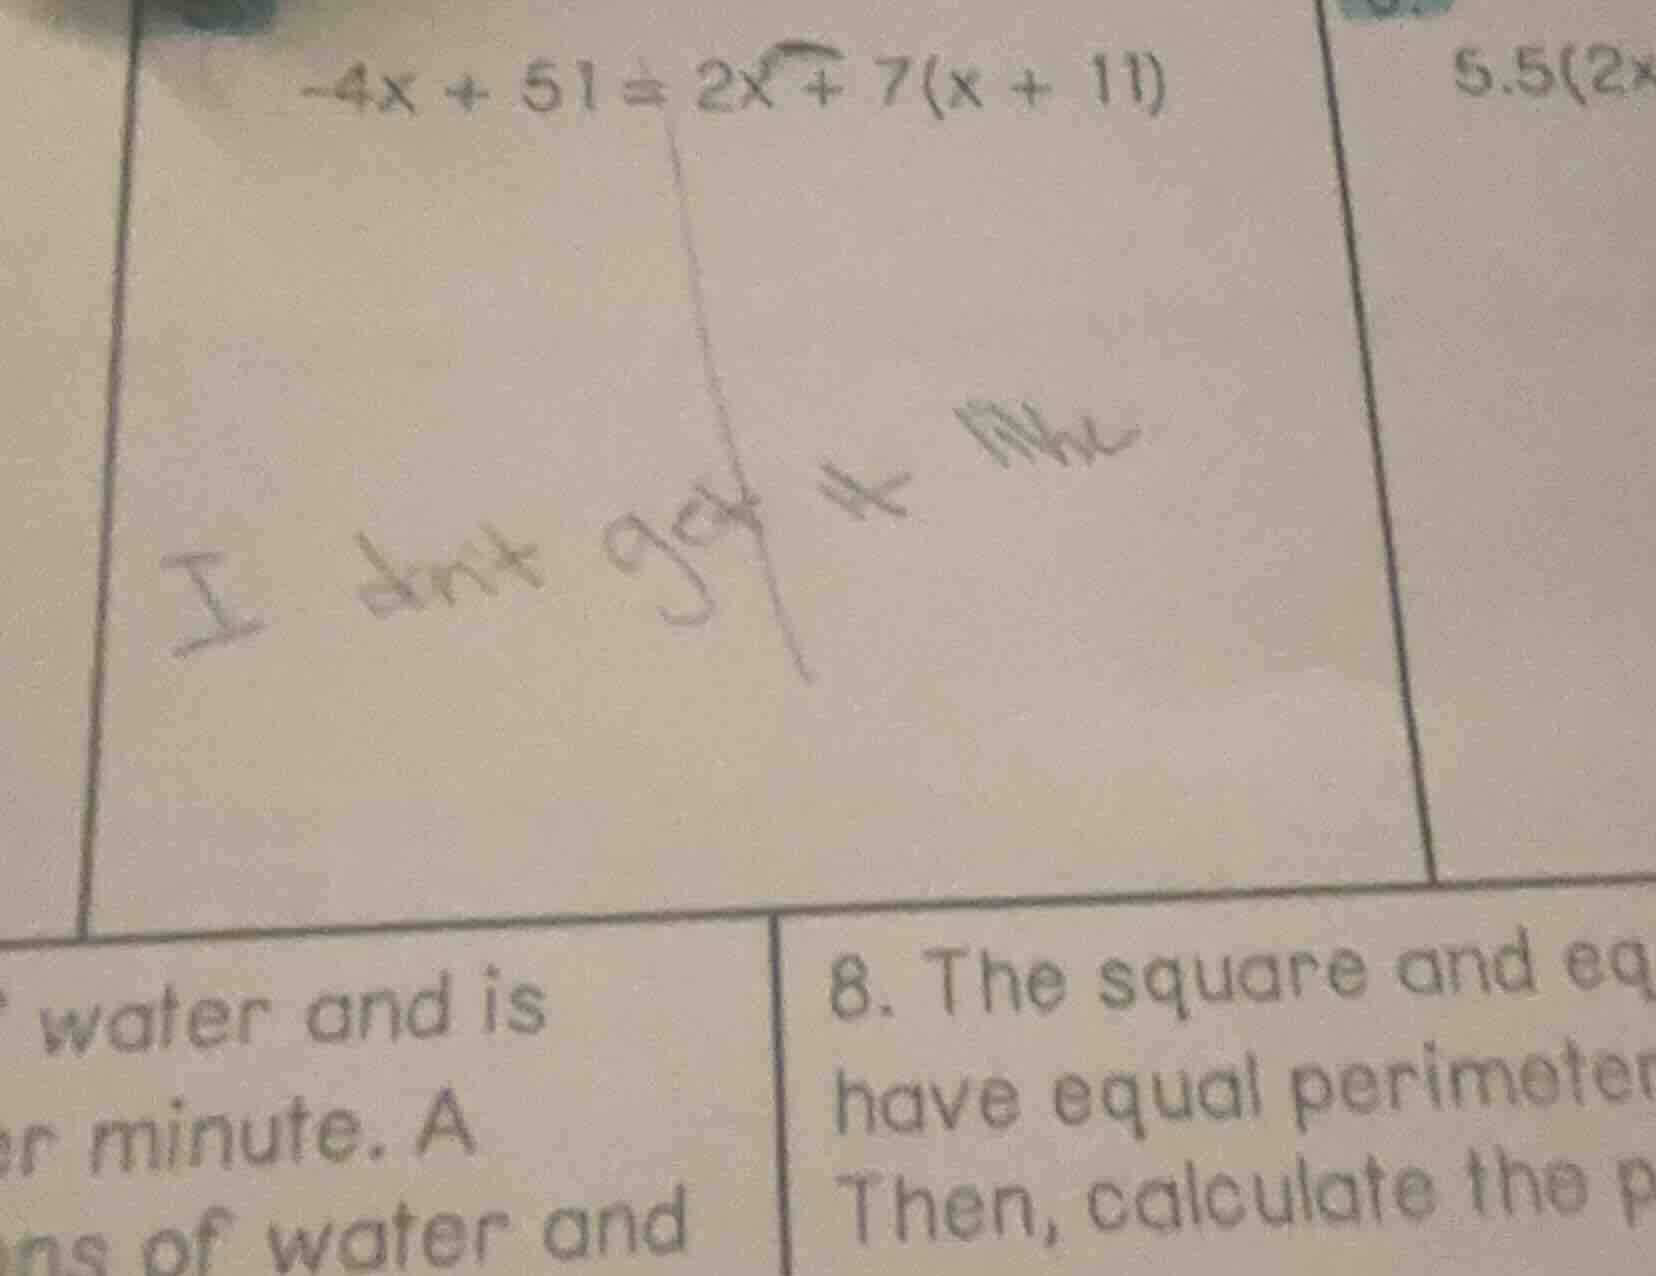 -4x + 51 = 2x + 7(x + 11)
5.5(2x
I don't get it
water and is
er minute. A
ns of water and
8. The square and eq
have equal perimeter
Then, calculate the p